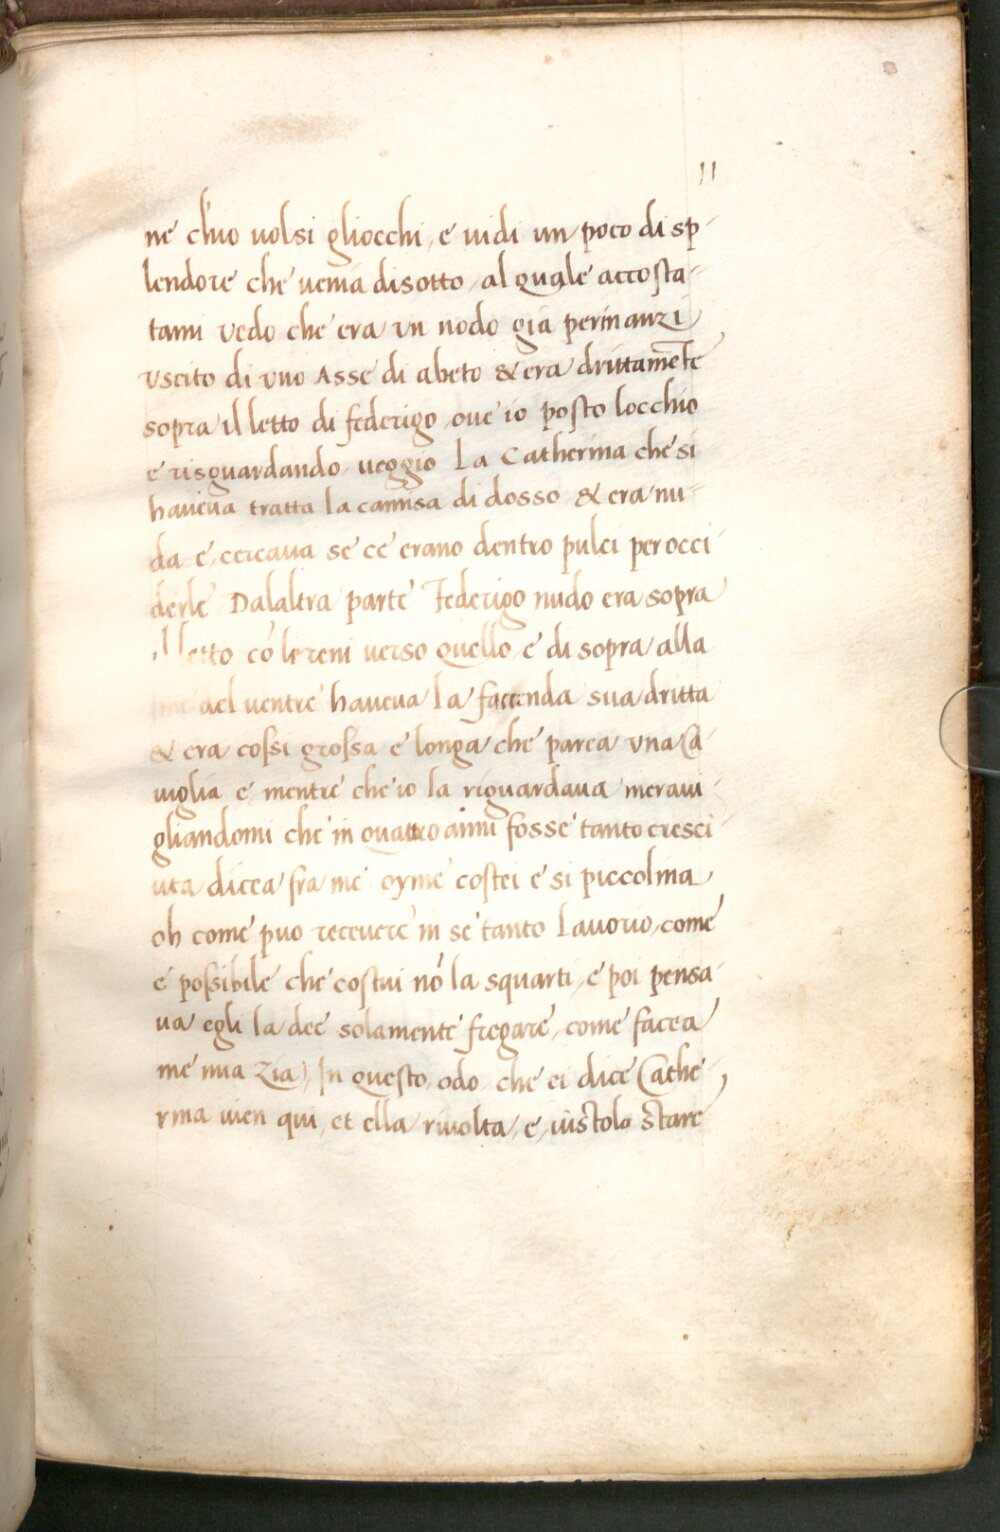 11
ne ch'io uolsi gliocchi, e uidi un poco di sp-
lendore che uenia disotto, al quale accosta-
tami vedo che era vn nodo gia perinanzi
vscito di vno Asse di abeto & era drittamẽte
sopra il letto di federigo, oue io posto locchio
e risguardando, ueggio La Catherina che si
haueua tratta la camisa di dosso & era nu-
da e, cercaua se ce erano dentro pulci per occi-
derle Dalaltra parte Federigo nudo era sopra
il letto cõ le reni uerso quello, e di sopra alla
del uentre haueua la facenda sua dritta
& era cossi grossa e longa che parea vna Ca
uiglia e mentre che io la riguardaua meraui-
gliandomi che in quattro anni fosse tanto cresci-
uta dicea fra me oyme costei e si piccolina
oh come puo receuere in se tanto lauorio, come
e possibile che costui nõ la squarti, e poi pensa-
ua egli la dee solamente fregare, come facea
me mia Zia), In questo, odo che ei dice Cathe-
rina uien qui, et ella riuolta, e, uistolo stare